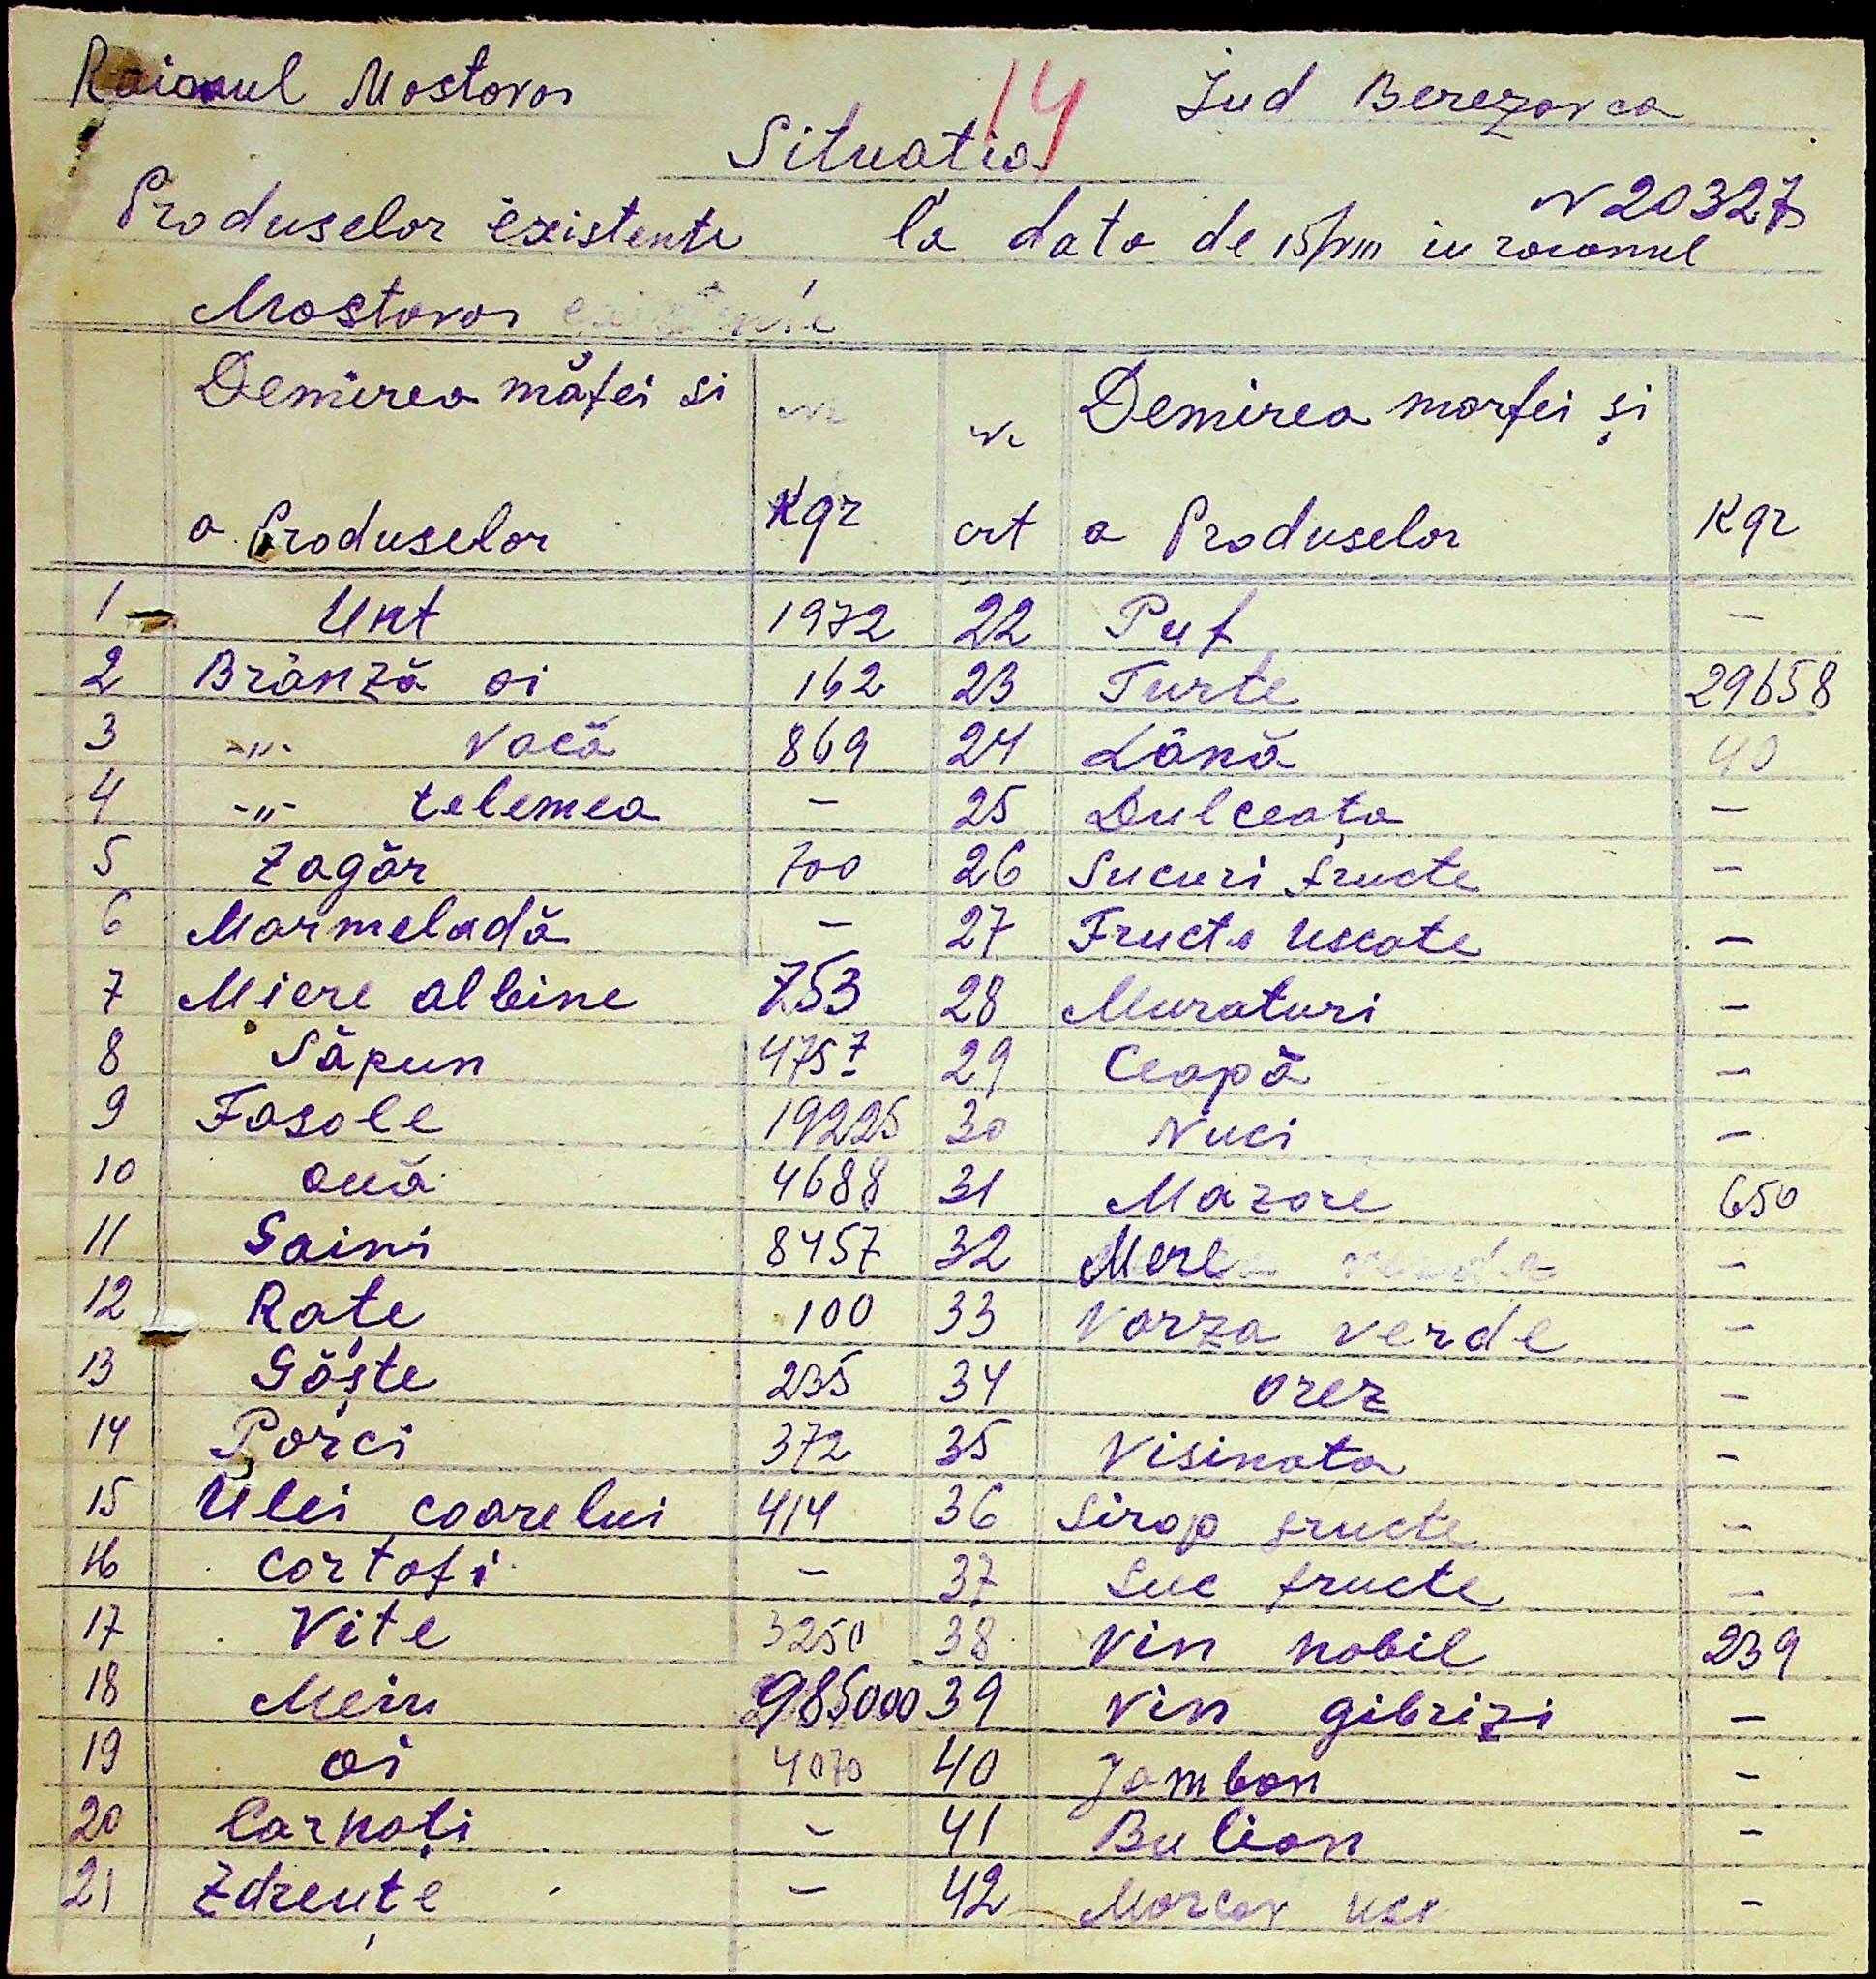 Raionul Mostovoi
14
Jud Berezovca
Situatia
N 20327
Produselor existente la data de 15/VIII in raionul
Mostovoi existente
Demirea măfei si nr nr Demirea marfei și
a Produselor Kgr crt a Produselor Kgr
1 Unt 1972 22 Puf —
2 Brânză oi 162 23 Turte 29658
3 -"- vacă 869 24 Lână 40
4 -"- telemea — 25 Dulceața —
5 Zagăr 700 26 Sucuri fructe —
6 Marmeladă — 27 Fructe uscate —
7 Miere albine 753 28 Muraturi —
8 Săpun 4757 29 Ceapă —
9 Fasole 19225 30 Nuci —
10 Ouă 4688 31 Mazare 650
11 Gaini 8457 32 Mere —
12 Rațe 100 33 Varza verde —
13 Gâște 235 34 Orez —
14 Porci 372 35 Visinata —
15 Ulei coarelui 414 36 Sirop fructe —
16 Cartofi — 37 Suc fructe —
17 Vite 3250 38 Vin nobil 239
18 Meiu 985000 39 Vin gibrizi —
19 Oi 4070 40 Jambon —
20 Carnați — 41 Bulion —
21 Zdrențe — 42 Morcov usc —